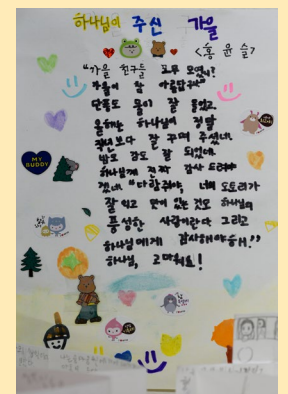 하나님이 주신 가을
<홍윤슬>
"가을 친구들 모두 모였니?
가을이 참 아름답구나"
단풍도 물이 잘 들었고
올해는 하나님이 정말
작년보다 잘 꾸며 주셨네.
밤도 감도 잘 되었네.
하나님께 진짜 감사 드려야
겠네" 다람쥐야, 너희 도토리가
잘 익고 맛이 있는 것도 하나님의
풍성한 사랑이란다 그리고
하나님에게 감사해야 해!"
하나님, 고마워요!
MY
BUDDY